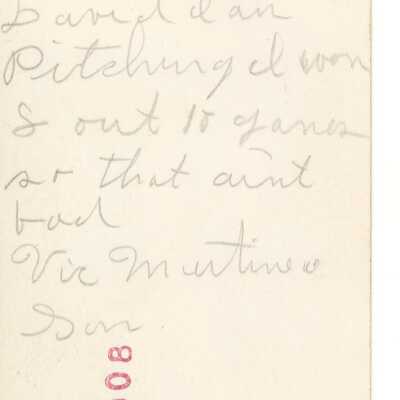 David I am
Pitching I won
8 out 10 games
so that aint
bad
Vic Martinee
Son
08